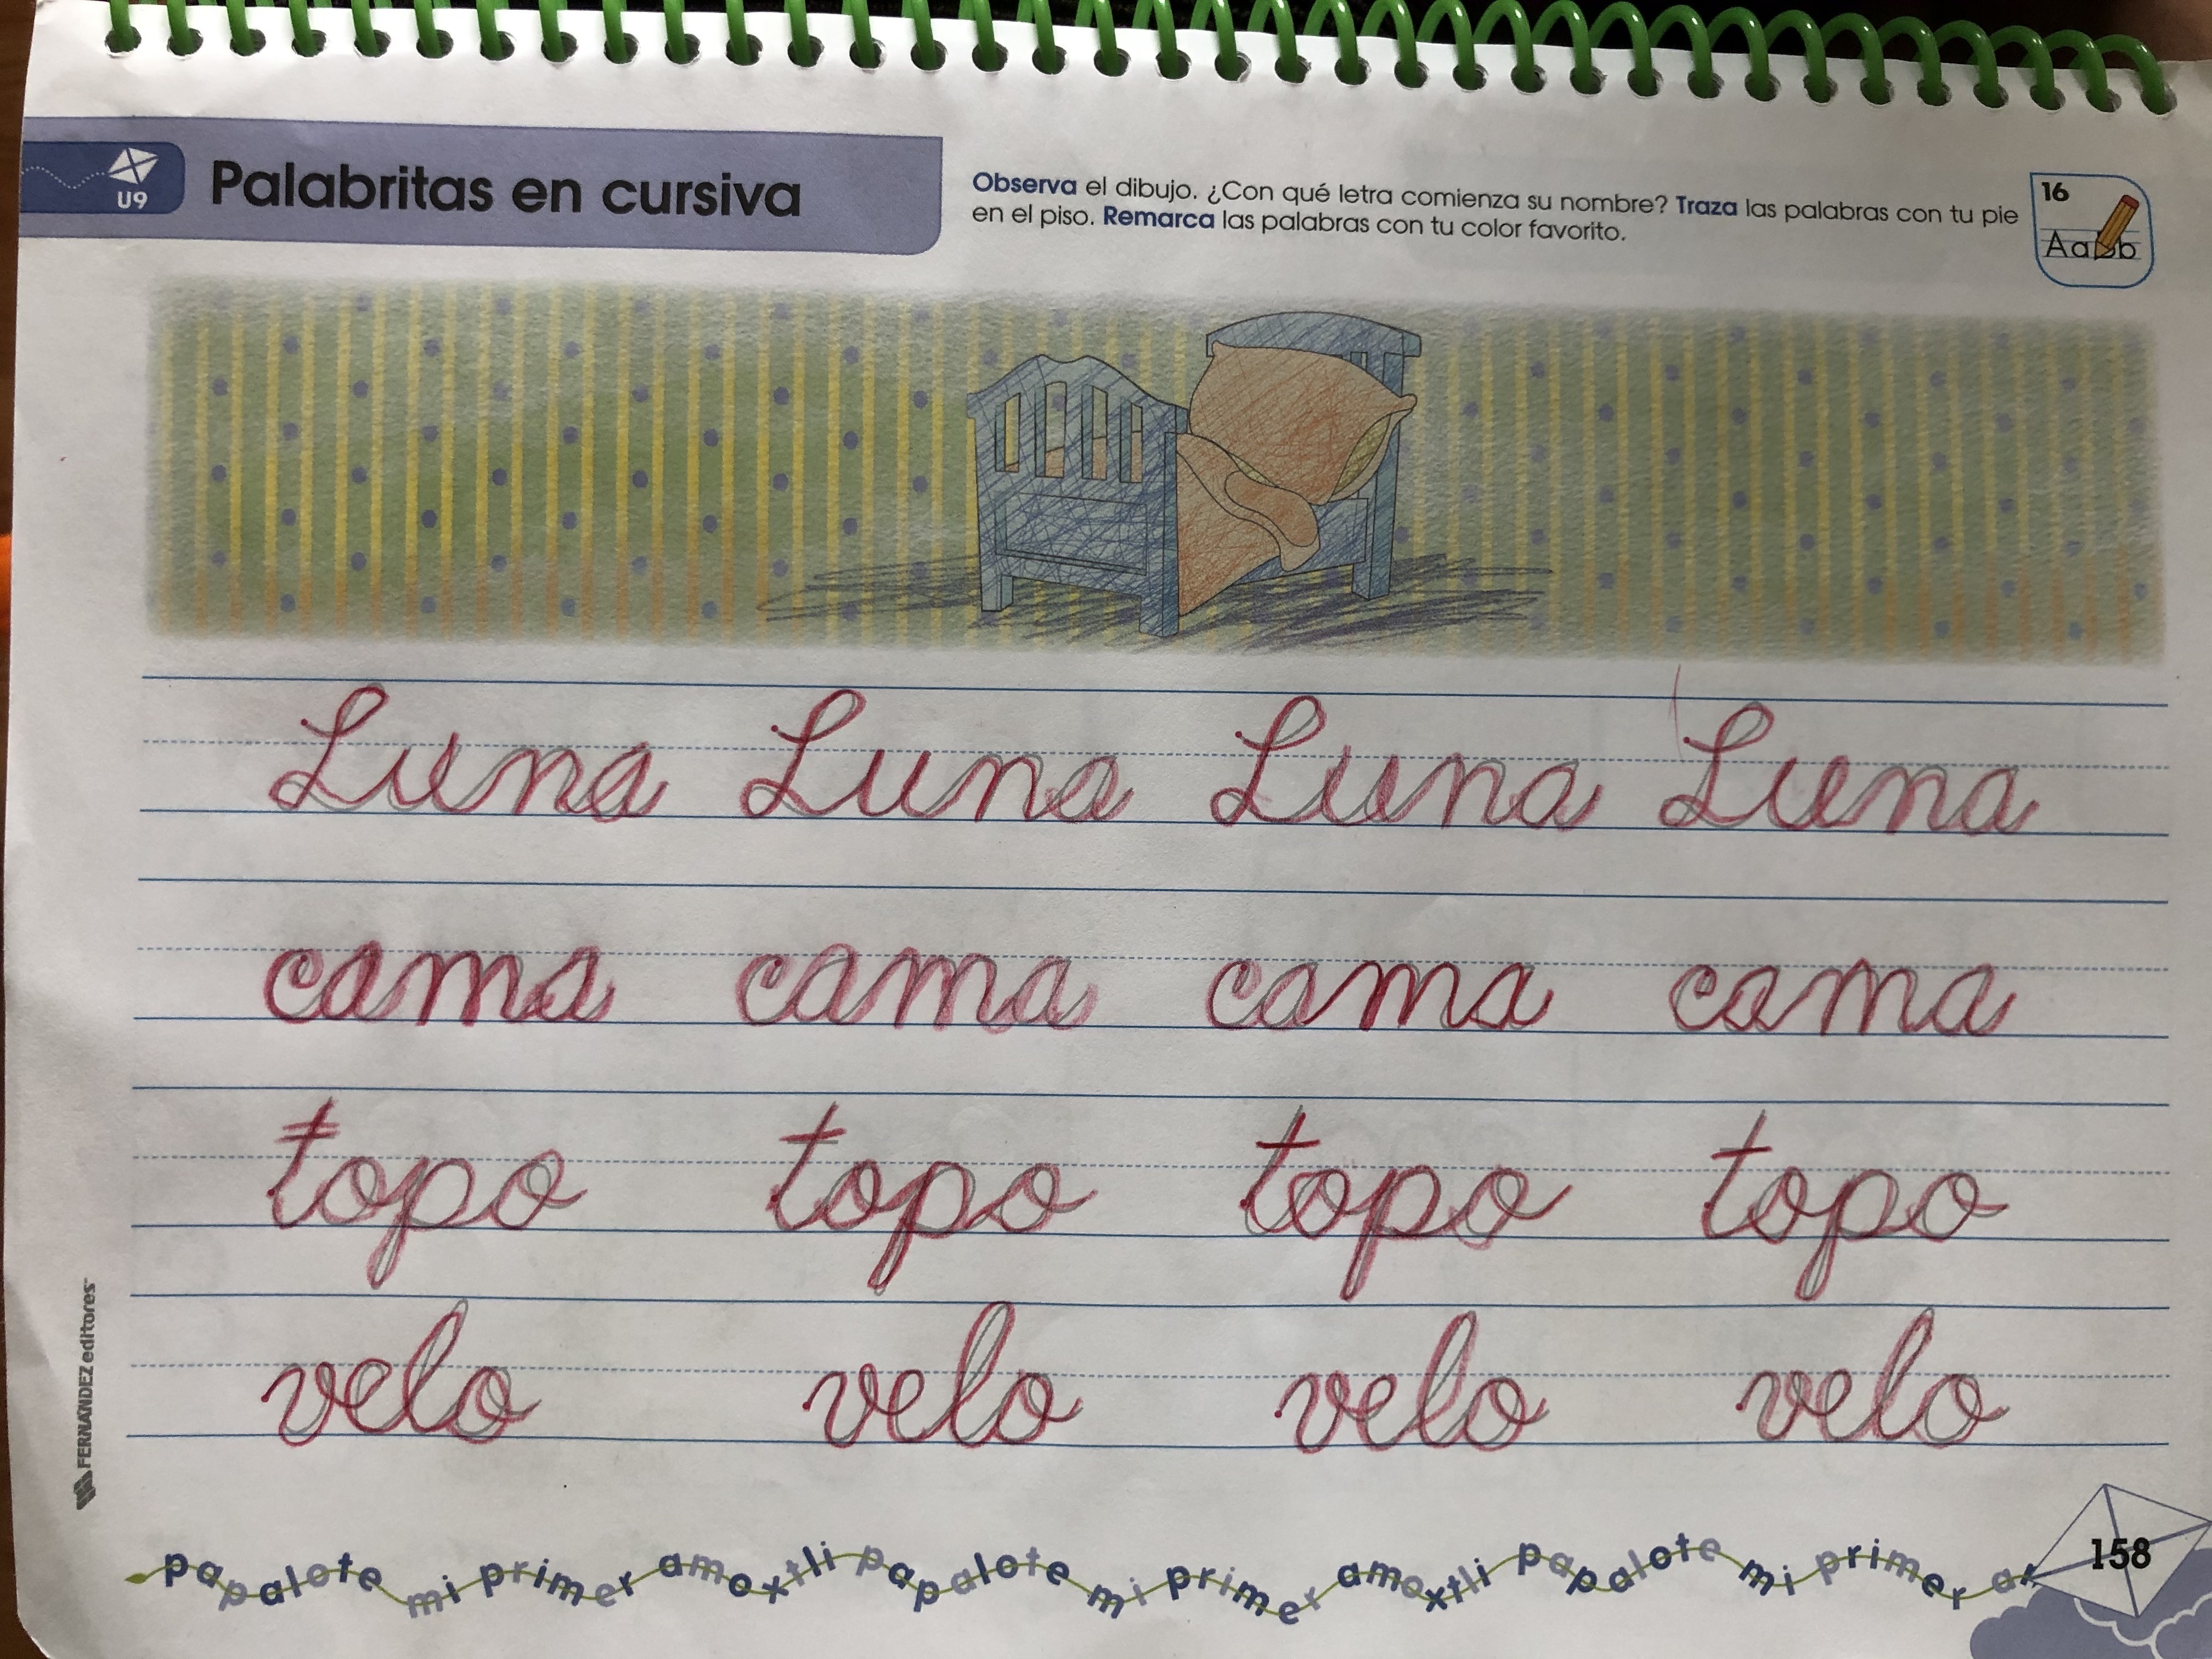 U9
Palabritas en cursiva
Observa el dibujo. ¿Con qué letra comienza su nombre? Traza las palabras con tu pie
en el piso. Remarca las palabras con tu color favorito.
16
AaBb
Luna Luna Luna Luna
cama cama cama cama
topo topo topo topo
velo velo velo velo
FERNANDEZ editores
papalote mi primer amoxtli papalote mi primer amoxtli papalote mi primer
158